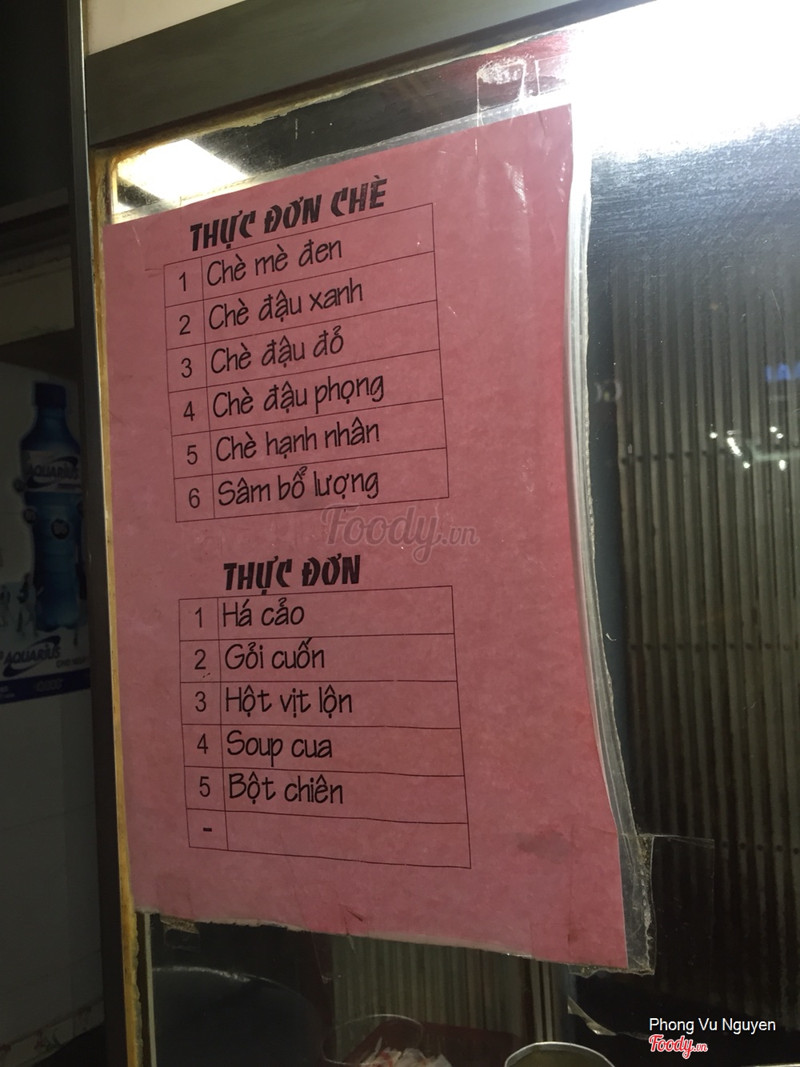 THỰC ĐƠN CHÈ
1 Chè mè đen
2 Chè đậu xanh
3 Chè đậu đỏ
4 Chè đậu phọng
5 Chè hạnh nhân
6 Sâm bổ lượng
Foody.vn
THỰC ĐƠN
1 Há cảo
2 Gỏi cuốn
3 Hột vịt lộn
4 Soup cua
5 Bột chiên
-
AQUARIUS
AQUARIUS
Phong Vu Nguyen
Foody.vn